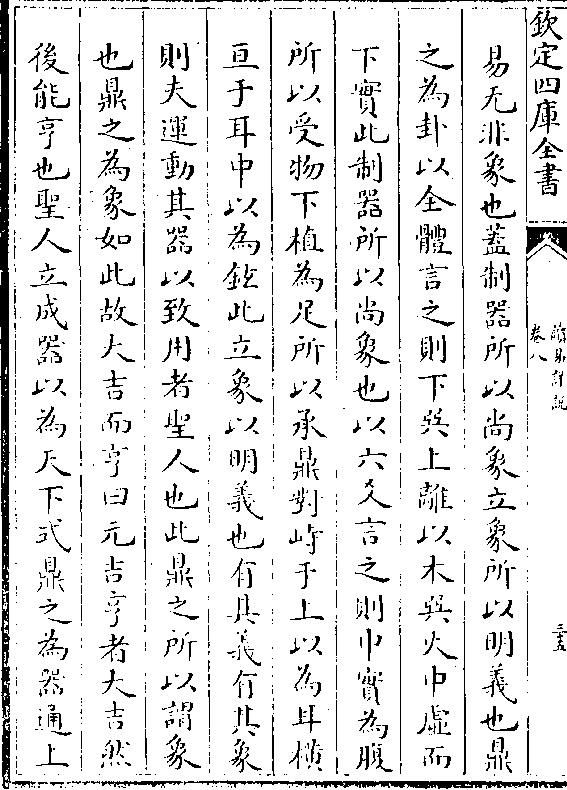 欽定四庫全書
讀易詳說
卷八
三五
易无非象也蓋制器所以尚象立象所以明義也鼎
之為卦以全體言之則下巽上離以木巽火中虛而
下實此制器所以尚象也以六爻言之則中實為腹
所以受物下植為足所以承鼎對峙于上以為耳橫
亘于耳中以為鉉此立象以明義也有其義有其象
則夫運動其器以致用者聖人也此鼎之所以謂象
也鼎之為象如此故大吉而亨曰元吉亨者大吉然
後能亨也聖人立成器以為天下式鼎之為器通上